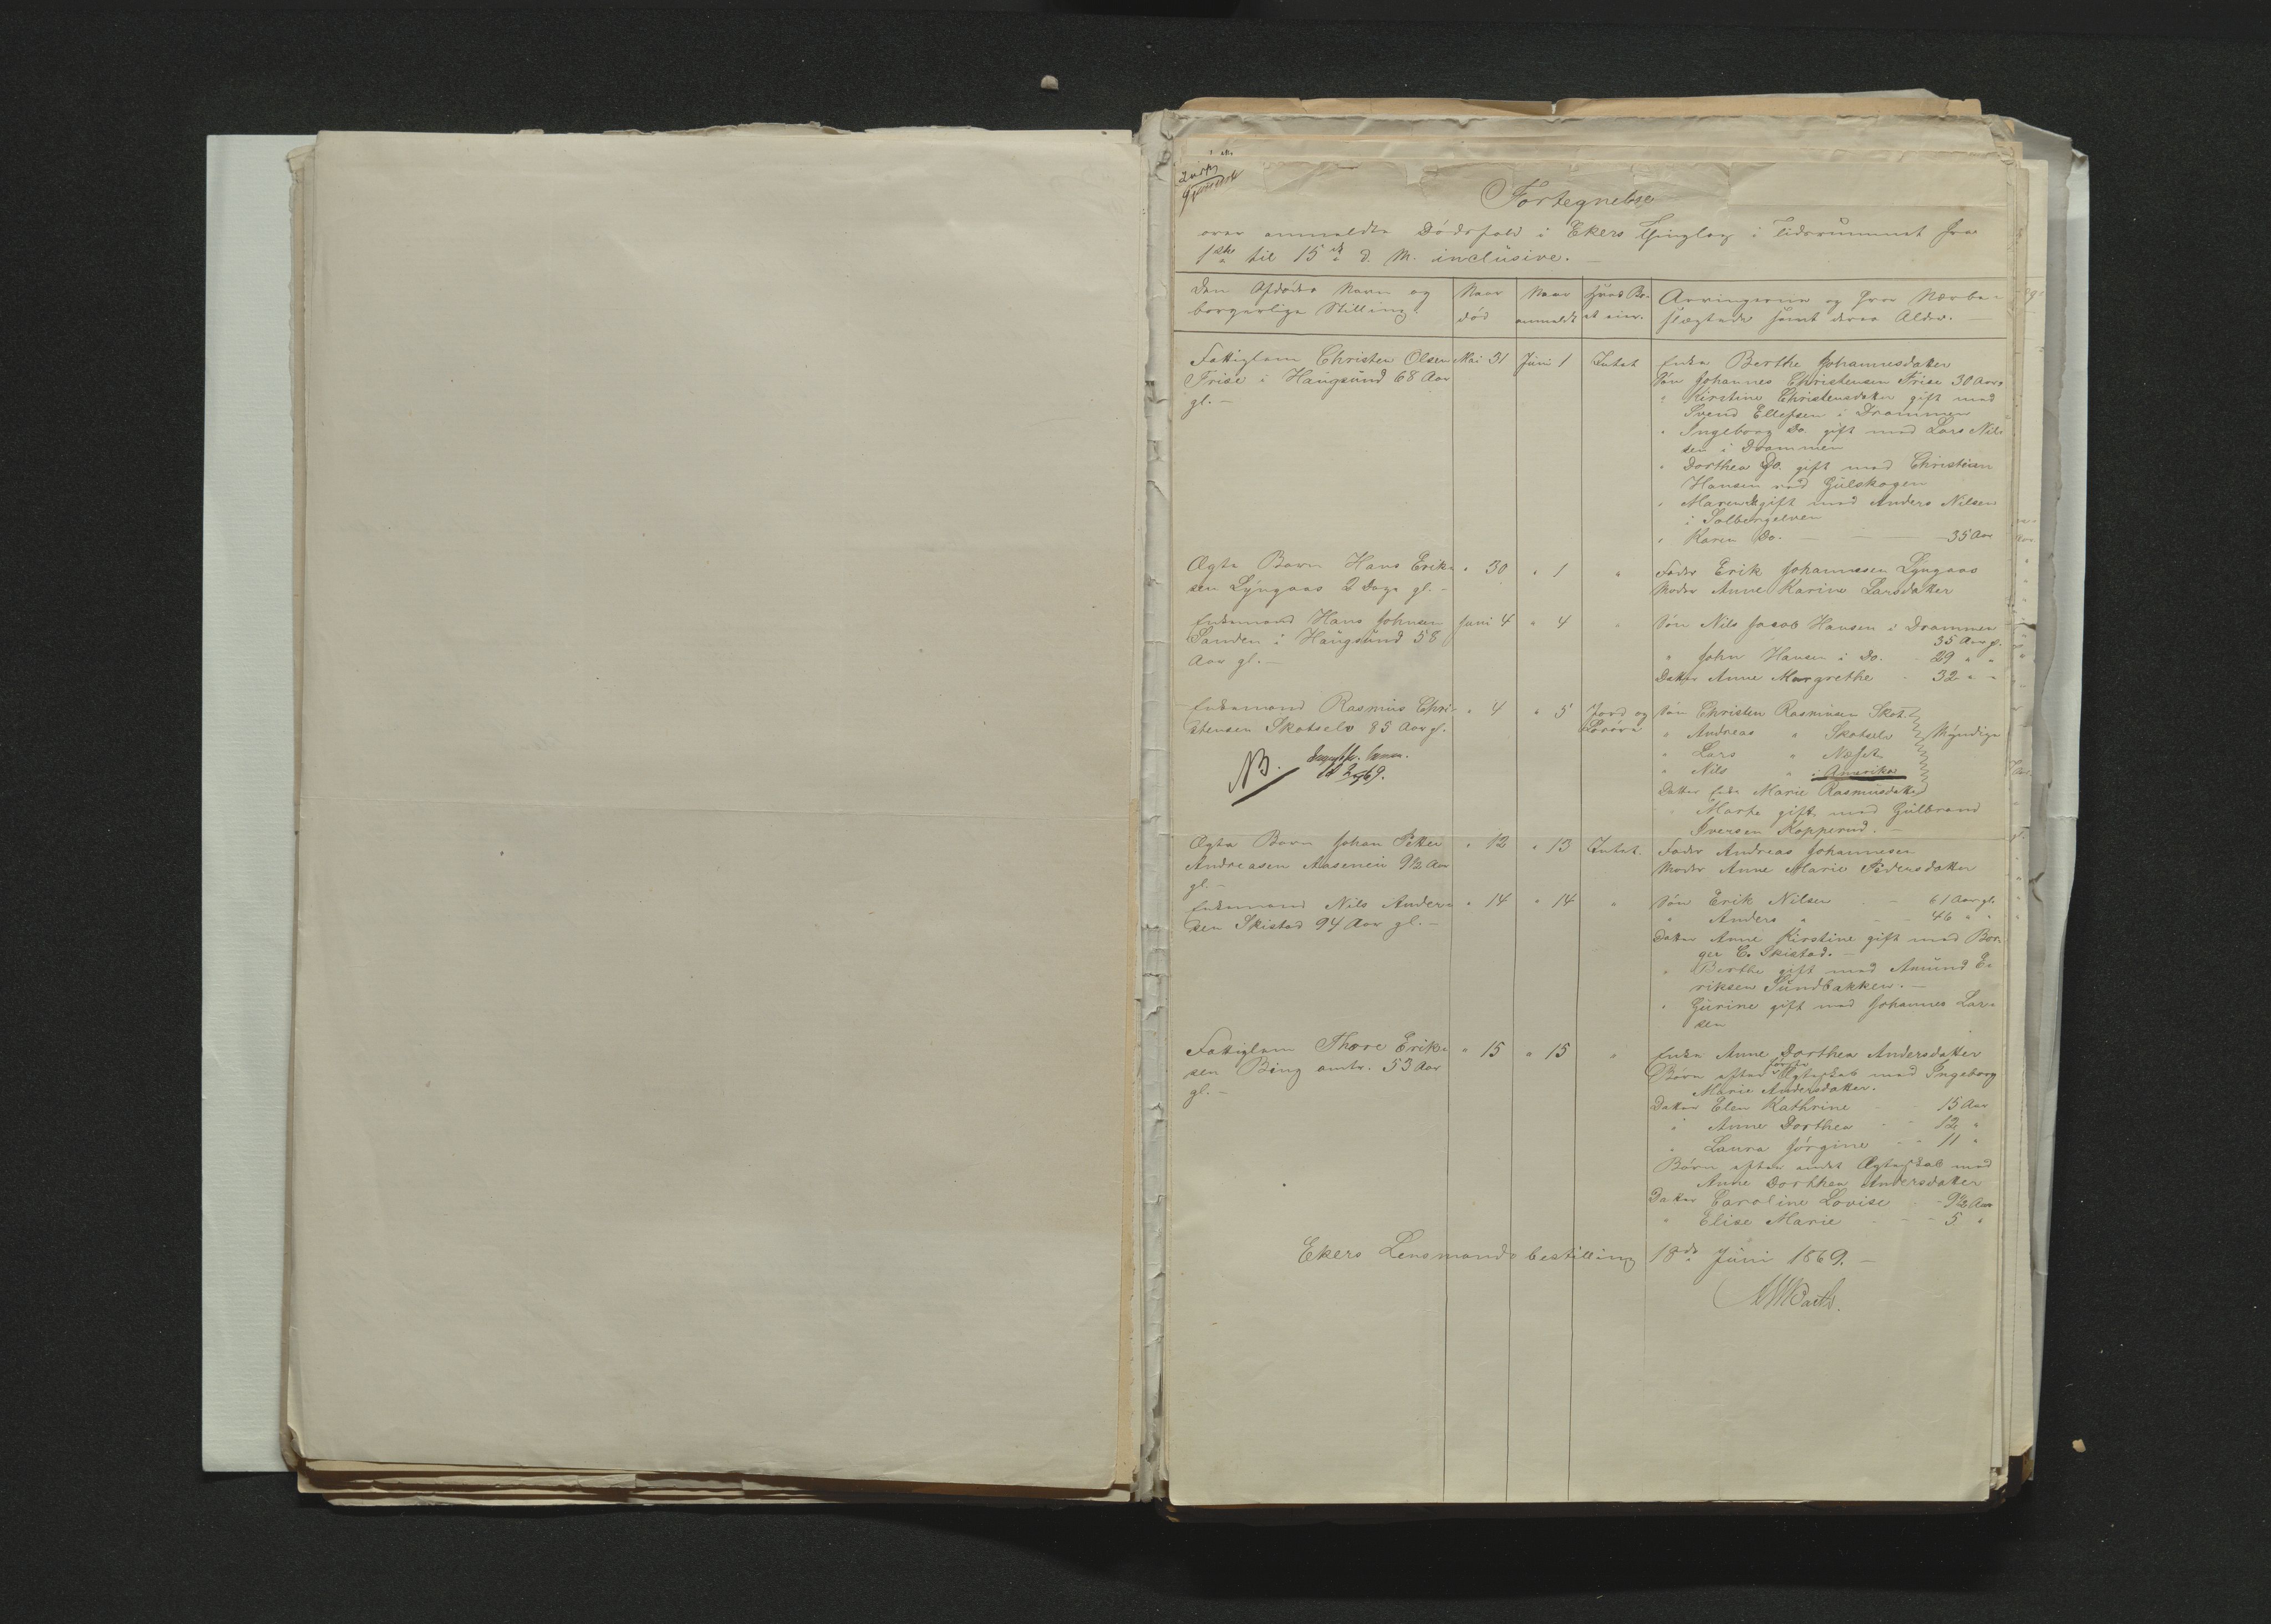 Fortegnelse
over anmeldte Dødsfald i Ekers Thinglag i Tidsrummet fra
1ste til 15de d. M. inclusive. —
Den Afdødes Navn og borgerlige Stilling.
Naar død
Naar anmeldt
Hvad Boet eier.
Arvingerne og hvor Nærbeslægtede samt deres Alder. —
Fattiglem Christen Olsen Mai 31 Juni 1 Intet Enke Berthe Johannesdatter
Frise i Haugsund 68 Aar Søn Johannes Christensen Frise 30 Aar
gl. — " Kirstine Christensdatter gift med
Svend Ellefsen i Drammen
" Ingeborg Do. gift med Lars Nil-
sen i Drammen
" Dorthea Do. gift med Christian
Hansen ved Gulskogen
" Maren gift med Anders Nilsen
i Solbergelven
" Karen Do. — — 35 Aar
Ægte Barn Hans Erik- " 30 " 1 " Fader Erik Johannesen Lyngaas
sen Lyngaas 2 Dage gl. — Moder Anne Karine Larsdatter
Enkemand Hans Johnsen Juni 4 " 4 " Søn Nils Jacob Hansen i Drammen
Sanden i Haugsund 58 35 Aar gl.
Aar gl. — " John Hansen i Do. 29 " "
Datter Anne Margrethe 32 " "
Enkemand Rasmus Chri- " 4 " 5 Jord og Søn Christen Rasmusen Skot.
stensen Skotselv 85 Aar gl. Løsøre " Andreas " Skotselv Myndige
" Lars "
NB. " Nils " i Amerika
Datter Enke Marie Rasmusdatter
" Marte gift med Gulbrand
Iversen Kopperud. —
Ægte Barn Johan Petter " 12 " 13 Intet. Fader Andreas Johannesen
Andreasen 9½ Aar Moder Anne Marie Pedersdatter
gl. —
Enkemand Nils Ander- " 14 " 14 " Søn Erik Nilsen — 61 Aar gl.
sen Skistad 94 Aar gl. — " Anders " — 46 " "
Datter Anne Kirstine gift med Bor-
ger C. Skistad. —
" Berthe gift med Amund E-
riksen Sundbakken. —
" Gurine gift med Johannes Lar-
sen
Fattiglem Thore Erik- " 15 " 15 " Enke Anne Dorthea Andersdatter
sen Bing omtr. 53 Aar Børn efter første Ægteskab med Ingeborg
gl. — Marie Andersdatter.
Datter Elen Kathrine 15 Aar
" Anne Dorthea 12 "
" Laura Jørgine 11 "
Børn efter andet Ægteskab med
Anne Dorthea Andersdatter
Datter Caroline Lovise 9½ Aar
" Elise Marie 5 "
Ekers Lensmandsbestilling 18de Juni 1869. —